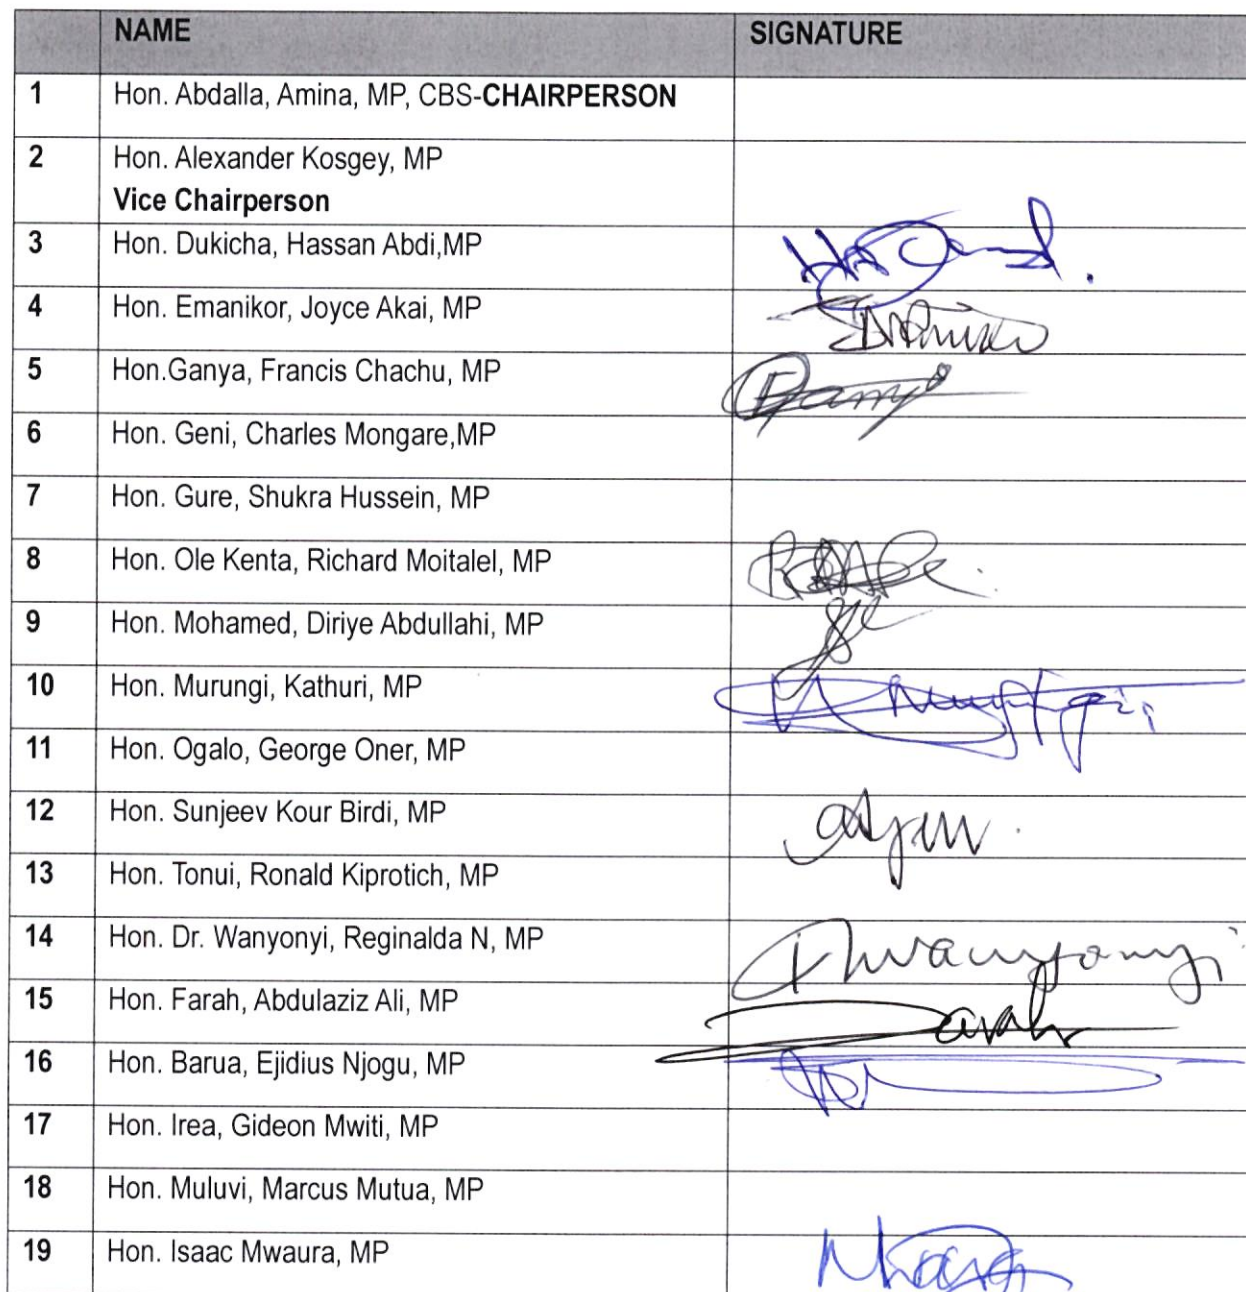 NAME SIGNATURE
1 Hon. Abdalla, Amina, MP, CBS-CHAIRPERSON
2 Hon. Alexander Kosgey, MP
Vice Chairperson
3 Hon. Dukicha, Hassan Abdi,MP
4 Hon. Emanikor, Joyce Akai, MP
5 Hon.Ganya, Francis Chachu, MP
6 Hon. Geni, Charles Mongare,MP
7 Hon. Gure, Shukra Hussein, MP
8 Hon. Ole Kenta, Richard Moitalel, MP
9 Hon. Mohamed, Diriye Abdullahi, MP
10 Hon. Murungi, Kathuri, MP
11 Hon. Ogalo, George Oner, MP
12 Hon. Sunjeev Kour Birdi, MP
13 Hon. Tonui, Ronald Kiprotich, MP
14 Hon. Dr. Wanyonyi, Reginalda N, MP
15 Hon. Farah, Abdulaziz Ali, MP
16 Hon. Barua, Ejidius Njogu, MP
17 Hon. Irea, Gideon Mwiti, MP
18 Hon. Muluvi, Marcus Mutua, MP
19 Hon. Isaac Mwaura, MP